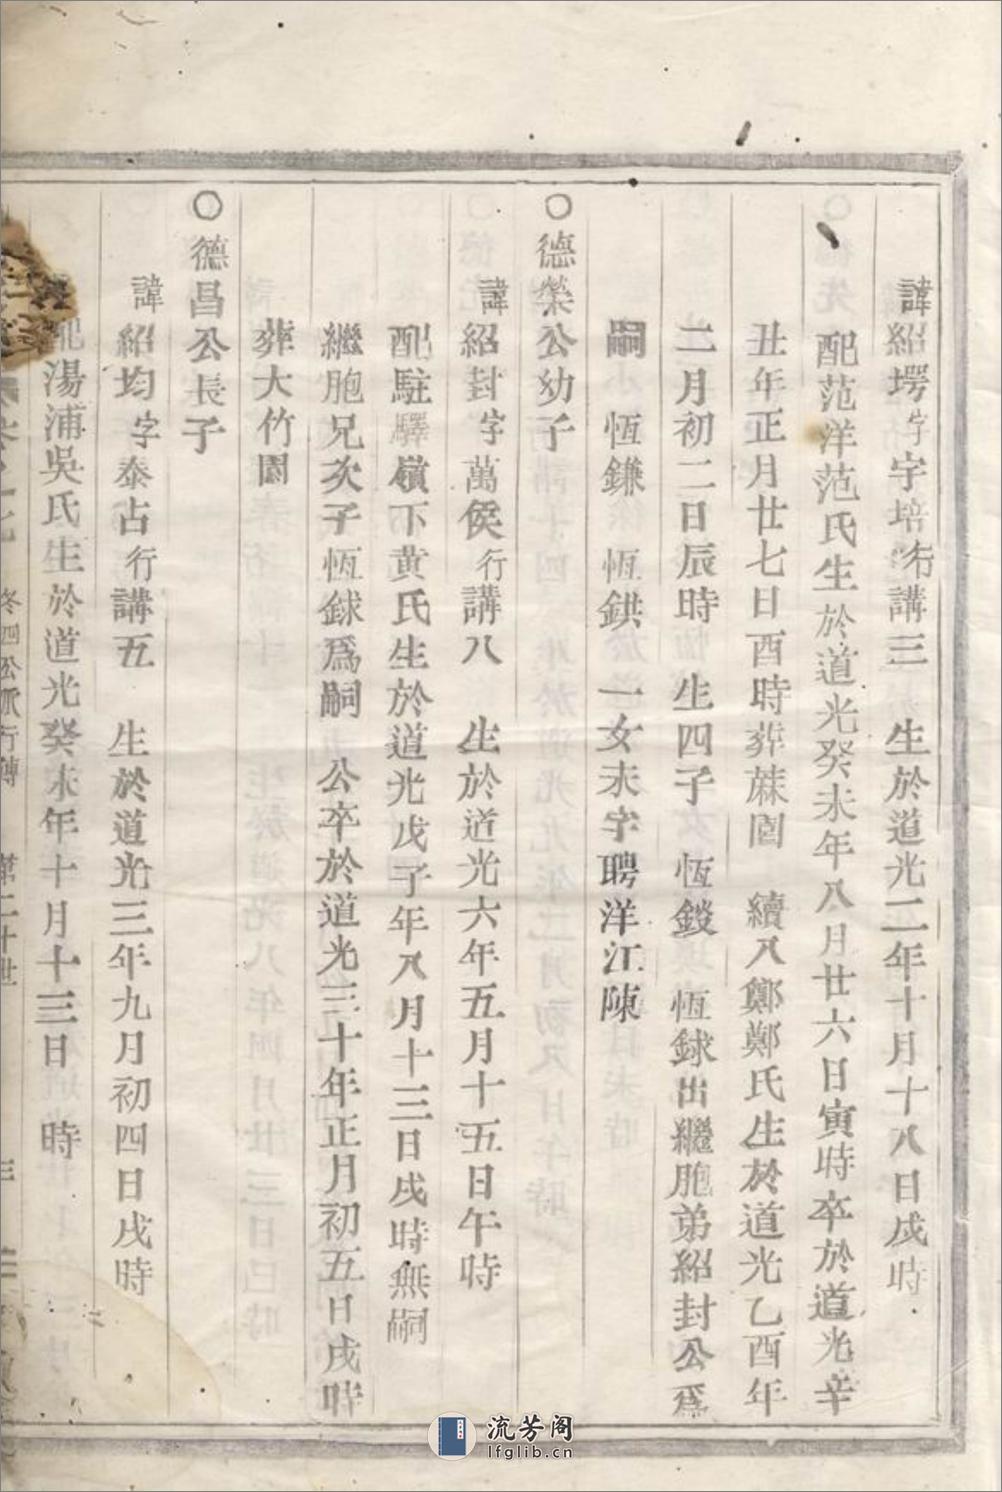 諱紹堮字字培行講三　生於道光二年十月十八日戌時
配范洋范氏生於道光癸未年八月廿六日寅時卒於道光辛
丑年正月廿七日酉時葬蔴園　續八鄭鄭氏生於道光乙酉年
二月初二日辰時　生四子　恆錟　恆銶出繼胞弟紹封公爲
嗣　恆鎌　恆鉷　一女未字聘洋江陳
○德榮公幼子
諱紹封字萬侯行講八　生於道光六年五月十五日午時
配駐驛嶺下黄氏生於道光戊子年八月十三日戌時無嗣
繼胞兄次子恆銶爲嗣　公卒於道光三十年正月初五日戌時
葬大竹園
○德昌公長子
諱紹均字泰占行講五　生於道光三年九月初四日戌時
配湯浦吳氏生於道光癸未年十月十三日　時
冬四公派行傳　第二十世
流芳阁
lfglib.cn